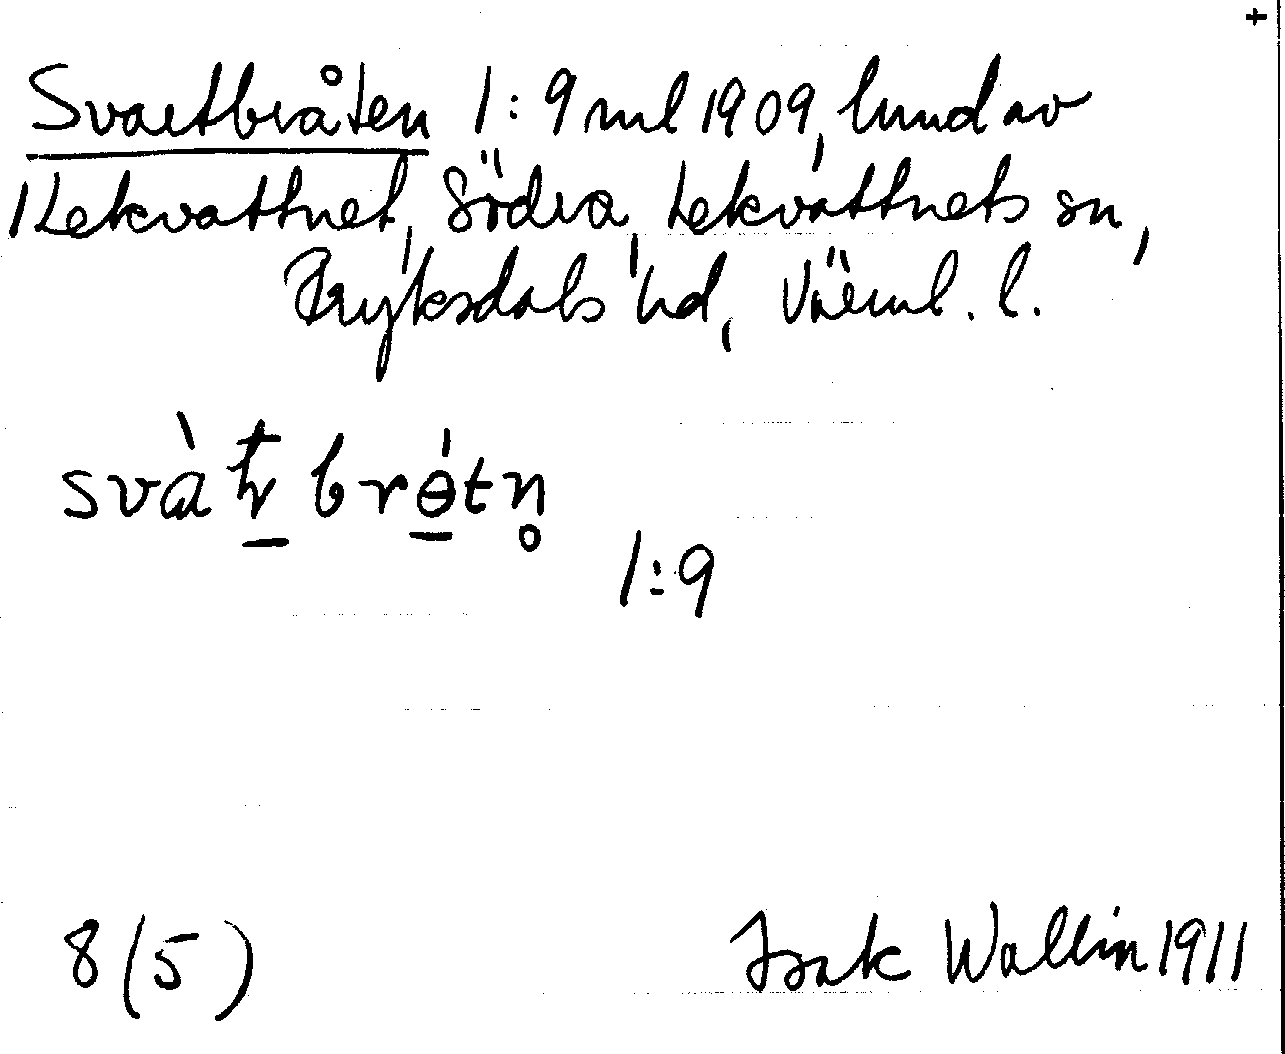 +
Svartbråten 1:9 ml 1909, lund av
1 Lekvattnet, Södra, Lekvattnets sn,
Fryksdals hd, Värml. l.
brǿtn̥
1:9
8 (5) Isak Wallin 1911